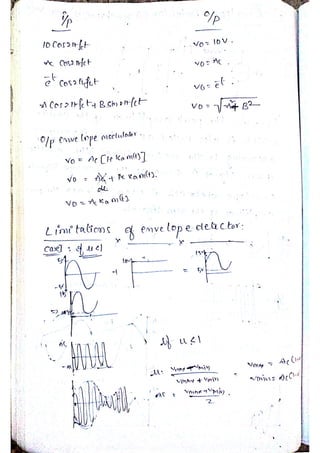 i/p O/p
10 Cos2πfct vo = 10V.
Ac Cos2πfct vo = Ac.
e^-t Cos2πfct vo = e^-t.
A Cos2πfct + B sin2πfct vo = √A²+B²
O/p envelope modulator.
vo = Ac [1+ Kam(t)]
vo = Ac + Ac Kam(t).
dc
vo = Ac Kam(t)
Limitations of envelope detector:
case1: if u<1
+ =
if u<1
u = vmax - vmin / vmax + vmin
vmax = Ac(1+
Ac = vmax + vmin / 2
vmin = Ac(1-